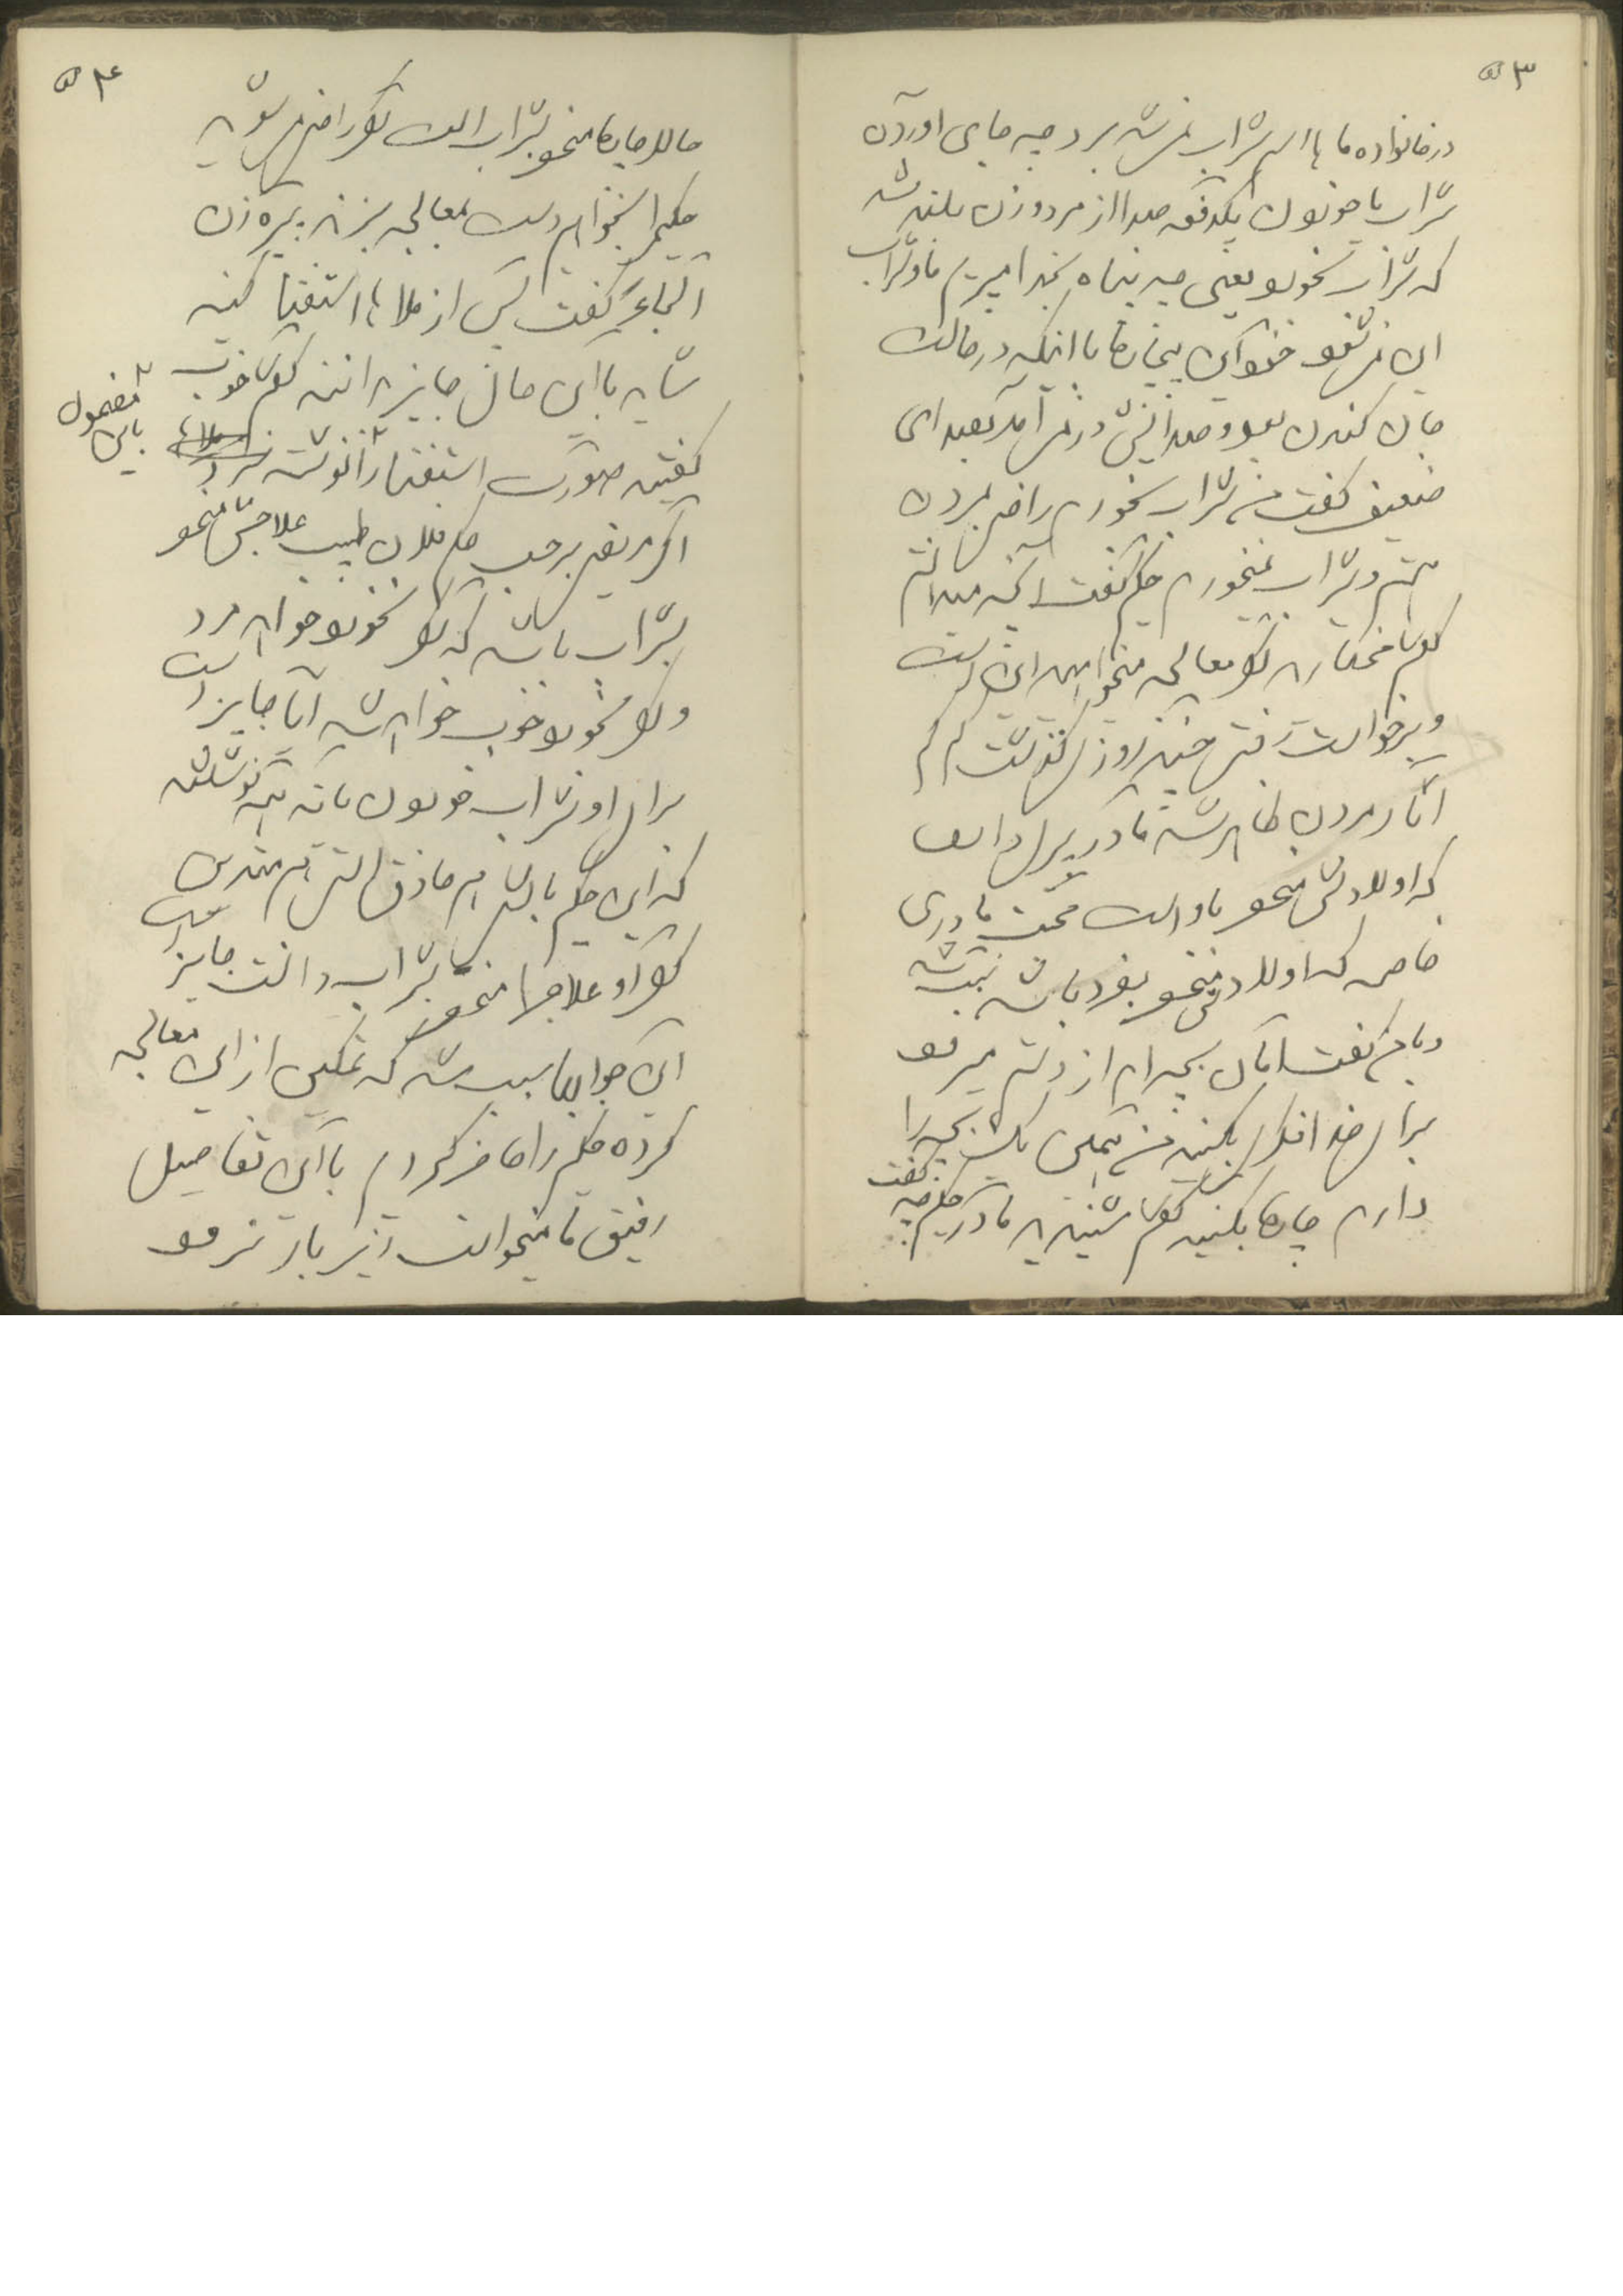 ۵۳
در خانواده ما ها اسم شراب نمیشد برد چه جای اوردن
شراب یا خوردن یکدفعه صدا از مرد و زن بلند شد
که شراب بخورد یعنی چه پناه بخدا میبریم ما و شراب
این نمیشود خود این بیچاره با اینکه در حالت
جان کندن بود و صدایش در نمی آمد بصدای
ضعیف گفت من شراب بخورم راضی بمردن
هستم و شراب نمیخورم حکیم گفت آنچه میدانستم
گفتم مختارید اگر معالجه میخواهید این است
و برخواست رفت چند روز گذشت کم کم
آثار مردن ظاهر شد مادر پیری داشت
که اولادش منحصر باو است محبت مادری
خاصه که اولاد منحصر بفرد باشد
و بمن گفت امان بچه ام از دستم میرود
برای خدا فکری بکنید من همین یک بچه را
دارم چاره بکنید گفتم شنیدید مادر حکیم چه گفت
۵۴
حالا چاره منحصر بشراب است اگر راضی میشوید
حکیم را بخواهم دست بمعالجه بزند پیره زن
گفت پس از ملا ها استفتا کنید
شاید با این حال جایز دانند گفتم خوب
گفتید صورت استفتا را نوشته باین مضمون
اگر مریضی برحسب حکم فلان طبیب علاجش منحصر
بشراب باشد که اگر نخورد خواهد مرد
و اگر بخورد خوب خواهد شد آیا جایز است
برای او شراب خوردن یا نه همه نوشتند
که این حکیم باشد هم حاذق است هم متدین
اگر او علاج را منحصر بشراب دانست جایز است
این جوابها سبب شد که تمکین از این معالجه
کرده حکیم را حاضر کردم با این تفاصیل
رفیق ما میخواست زیر بار نرود